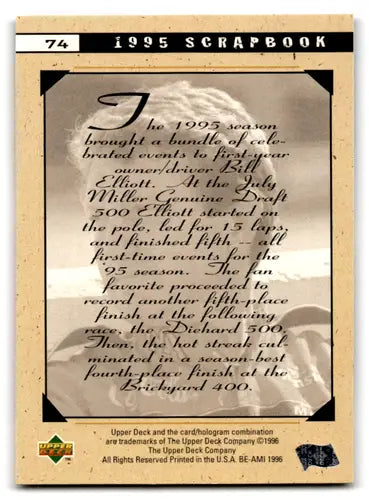 74
1995 SCRAPBOOK
The 1995 season
brought a bundle of cele-
brated events to first-year
owner/driver Bill
Elliott. At the July
Miller Genuine Draft
500 Elliott started on
the pole, led for 15 laps,
and finished fifth -- all
first-time events for the
95 season. The fan
favorite proceeded to
record another fifth-place
finish at the following
race, the Diehard 500.
Then, the hot streak cul-
minated in a season-best
fourth-place finish at the
Brickyard 400.
UPPER
DECK
Upper Deck and the card/hologram combination
are trademarks of The Upper Deck Company ©1996
The Upper Deck Company
All Rights Reserved Printed in the U.S.A. BE-AMI 1996